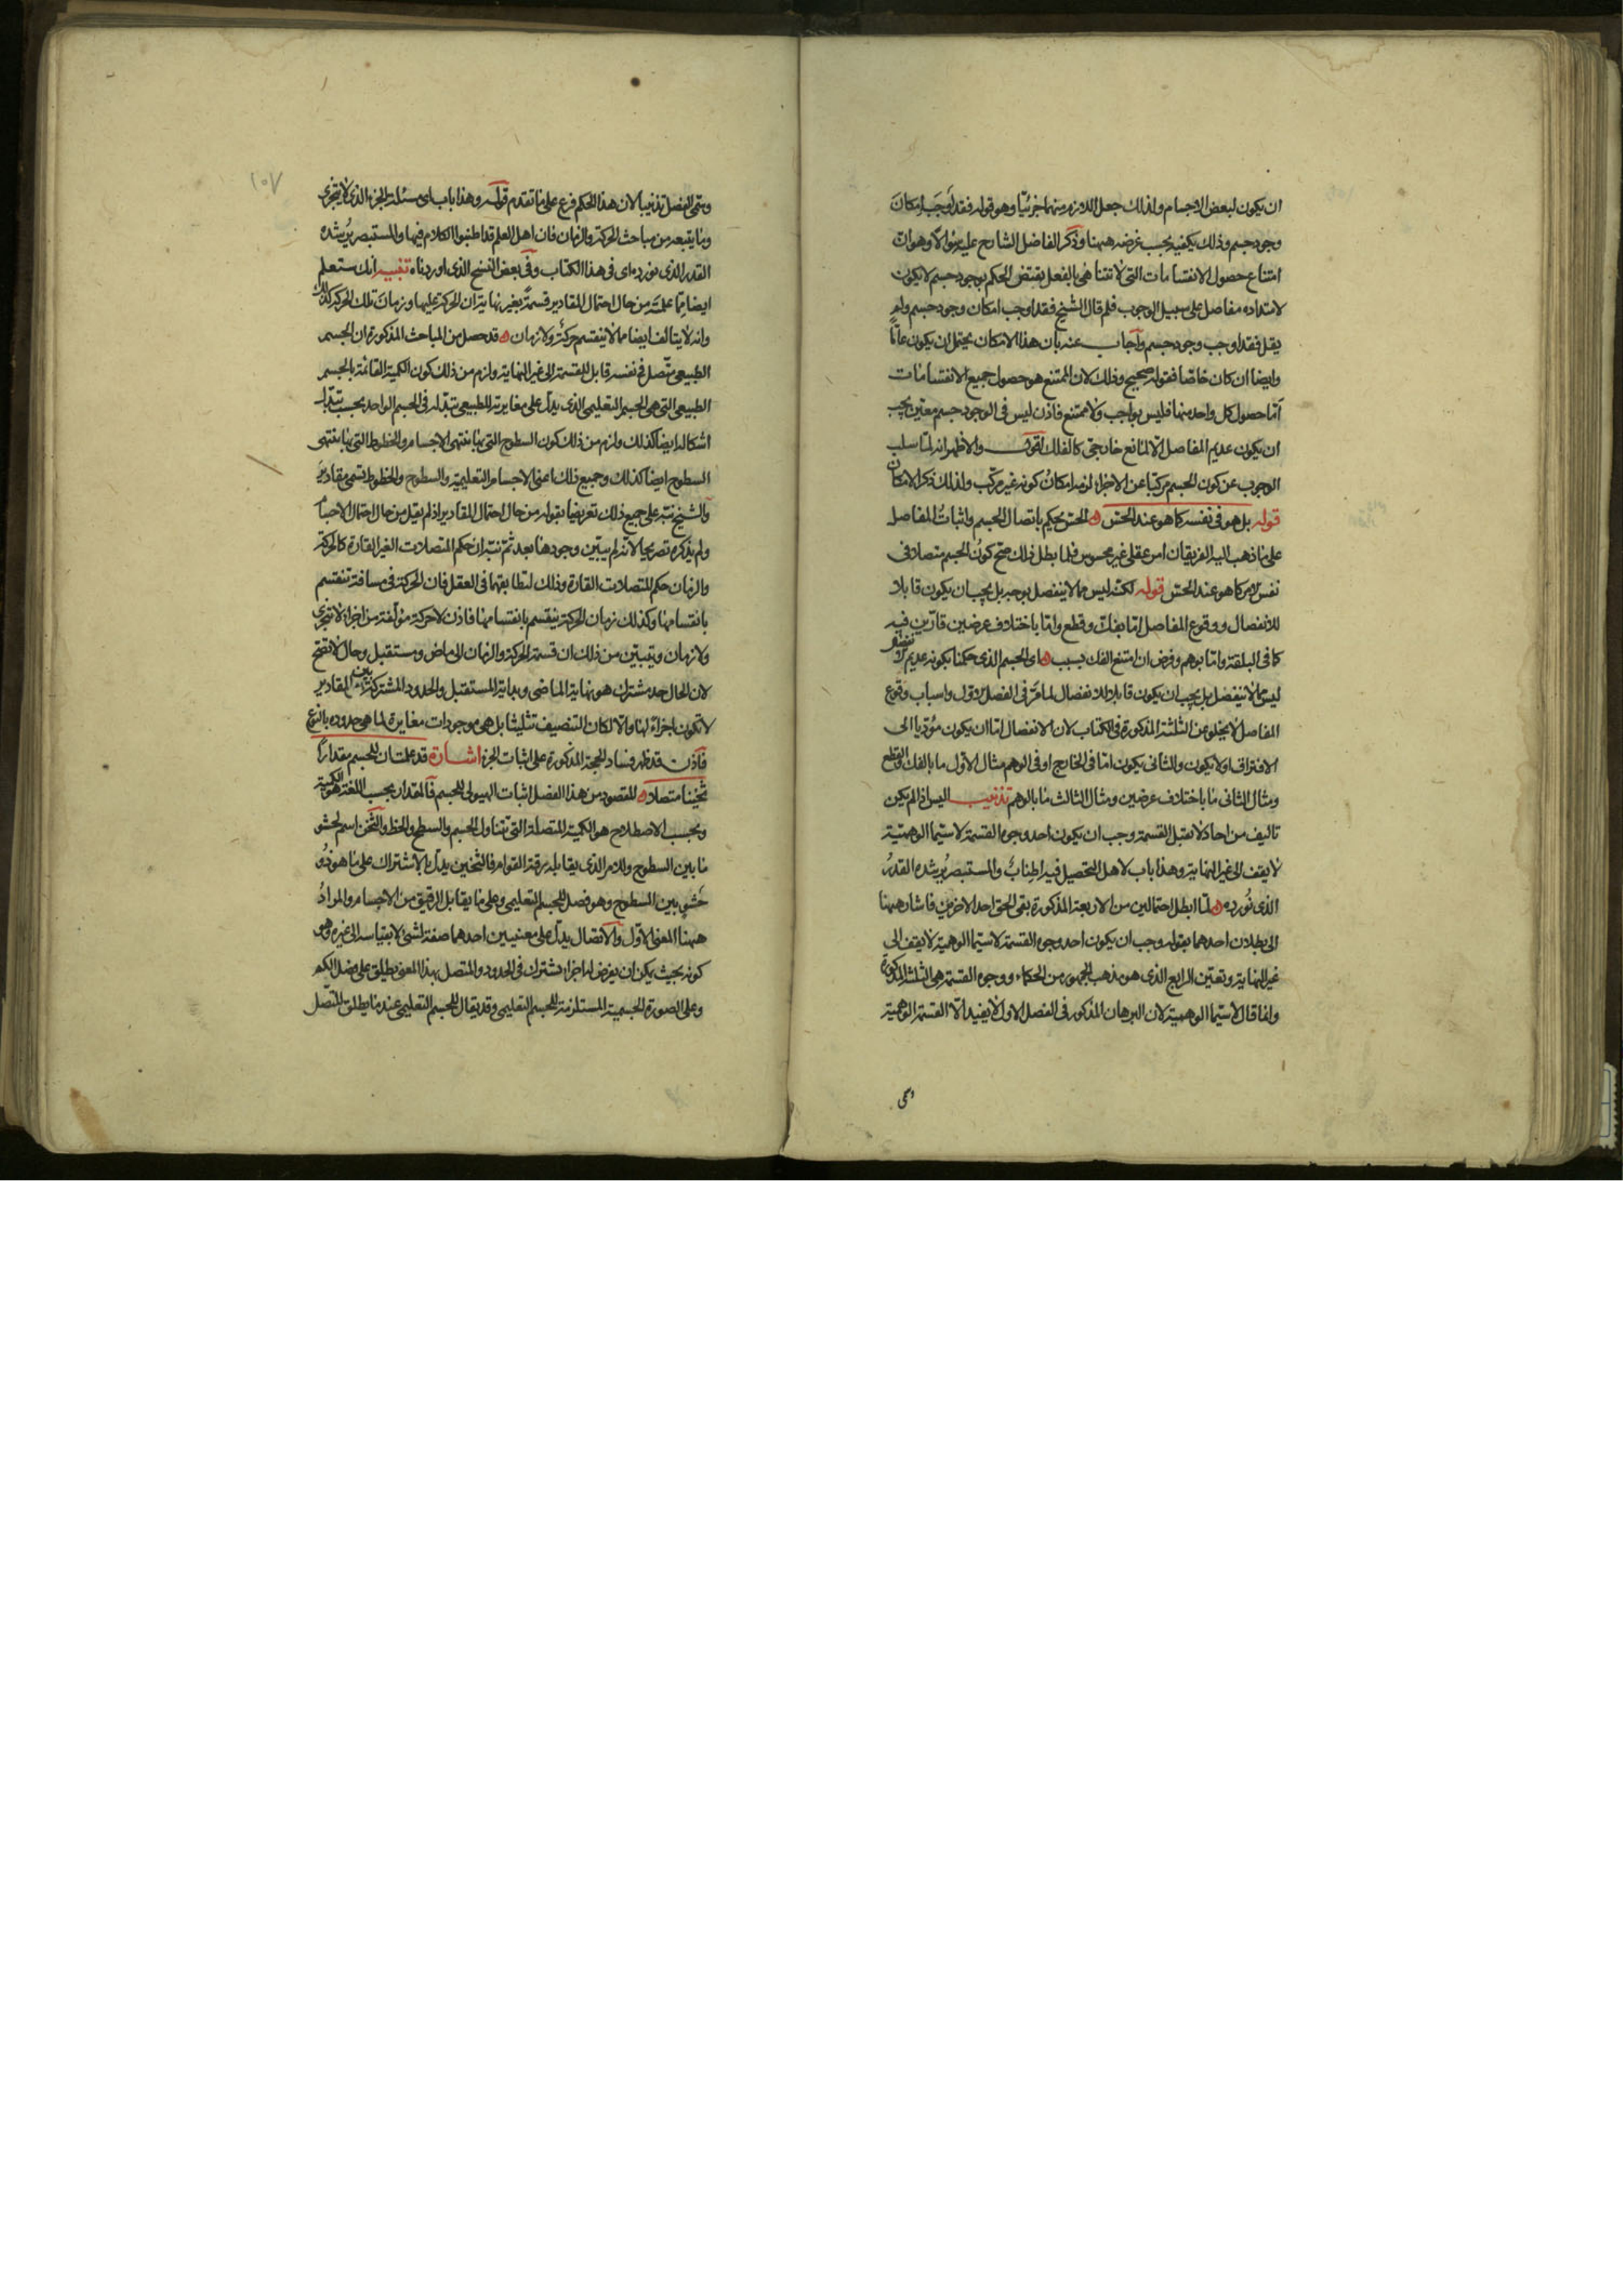 ان يكون لبعض الاجسام ولذلك جعل اللازم منهما جزئيا وهو قوله فقد اوجب امكان
وجود جسم وذلك يكفيه بحسب غرضه ههنا وذكر الفاضل الشارح عليه سؤالا وهو ان
امتناع حصول الانقسامات التى لا تتناهى بالفعل يقتضى الحكم بوجود جسم لا يكون
لامتداده مفاصل على سبيل الوجوب فلم قال الشيخ فقد اوجب امكان وجود جسم ولم
يقل فقد اوجب وجود جسم واجاب عنه بان هذا الامكان يحتمل ان يكون عامّا
وايضا ان كان خاصّا فقوله صحيح وذلك لان الممتنع هو حصول جميع الانقسامات
امّا حصول كل واحد منها فليس بواجب ولا ممتنع فاذن ليس فى الوجود جسم معيّن يجب
ان يكون عديم المفاصل الّا لمانع خارجىّ كالفلك اقول والاظهر انه لمّا سلب
الوجوب عن كون الجسم مركّبا عن الاجزاء لزمه امكان كونه غير مركّب ولذلك ذكر الامكان
قوله بل هو فى نفسه كما هو عند الحسّ ه الحسّ يحكم باتصال الجسم واثبات المفاصل
على ما ذهب اليه الفريقان امر عقلى غير محسوس فلما بطل ذلك صحّ كون الجسم متصلا فى
نفس الامر كما هو عند الحسّ قوله لكنّه ليس مما لا ينفصل بوجه بل يجب ان يكون قابلا
للانفصال ووقوع المفاصل امّا بفكّ وقطع وامّا باختلاف عرضين قارّين فيه
كما فى البلقة وامّا بوهم وفرض ان امتنع الفك بسبب ه اى الجسم الذى حكمنا بكونه عديم
ليس مما لا ينفصل بل يجب ان يكون قابلا للانفصال لما مرّ فى الفصل الاول واسباب وقوع
المفاصل لا يخلو عن الثلثة المذكورة فى الكتاب لان الانفصال امّا ان يكون مؤدّيا الى
الافتراق او لا يكون والثانى يكون امّا فى الخارج او فى الوهم مثال الاوّل ما بالفك والقطع
ومثال الثانى ما باختلاف عرضين ومثال الثالث ما بالوهم تذنيب اليس اذا لم يكن
تاليف من احاد لا تقبل القسمة وجب ان يكون احد وجوه القسمة لاسيّما الوهميّة
لا يقف الى غير النهاية وهذا باب لاهل التحصيل فيه اطناب والمستبصر يرشده القدر
الذى نورده ه لمّا ابطل احتمالين من الاربعة المذكورة بقى الحق احد الاخرين فاشار ههنا
الى بطلان احدهما بقوله وجب ان يكون احد وجوه القسمة لاسيّما الوهمية لا يقف الى
غير النهاية وتعيّن الرابع الذى هو مذهب الجمهور من الحكماء ووجوه القسمة هى الثلثة المذكورة
وانما قال لاسيّما الوهمية لان البرهان المذكور فى الفصل الاول لا يفيد الّا القسمة الوهميّة
وسمّى الفصل تذنيبا لان هذا الحكم فرع على ما تقدم قوله وهذا باب اى مسئلة الجزء الذى لا يتجزى
وما يتبعه من مباحث الحركة والزمان فان اهل العلم قد اطنبوا الكلام فيها والمستبصر يرشده
القدر الذى نورده اى فى هذا الكتاب وفى بعض النسخ الذى اوردناه تنبيه انك ستعلم
ايضا ممّا علمته من حال احتمال المقادير قسمة بغير نهاية ان الحركة عليها وزمان تلك الحركة كذلك
وانه لا يتالف ايضا مما لا ينقسم حركة ولا زمان ه قد حصل من المباحث المذكورة ان الجسم
الطبيعى متّصل فى نفسه قابل للقسمة الى غير النهاية ولزم من ذلك كون الكمية القائمة بالجسم
الطبيعى التى هى الجسم التعليمى الذى يدلّ على مغايرته للطبيعى تبدّله فى الجسم الواحد بحسب تبدّل
اشكاله ايضا كذلك ولزم من ذلك كون السطوح التى بها ينتهى الاجسام والخطوط التى بها ينتهى
السطوح ايضا كذلك وجميع ذلك اعنى الاجسام التعليميّة والسطوح والخطوط تسمى مقادير
والشيخ نبّه على جميع ذلك تعريضا بقوله من حال احتمال المقادير اذ لم يقل من حال احتمال الاجسام
ولم يذكره تصريحا لانّه لم يبيّن وجودها بعد ثمّ نبّه ان حكم المتصلات الغير القارة كالحركة
والزمان حكم المتصلات القارة وذلك لتطابقهما فى العقل فان الحركة فى مسافة تنقسم
بانقسامها وكذلك زمان الحركة ينقسم بانقسامها فاذن لا حركة مؤلفة من اجزاء لا تتجزى
ولا زمان وتبيّن من ذلك ان قسمة الحركة والزمان الى ماض ومستقبل وحال لا تصحّ
لان الحال حد مشترك هو نهاية الماضى وبداية المستقبل والحدود المشتركة بين المقادير
لا تكون اجزاء لها والّا لكان التنصيف تثليثا بل هى موجودات مغايرة لما هى حدوده بالنوع
فاذن قد ظهر فساد الحجة المذكورة على اثبات الجزء اشارة قد علمت ان للجسم مقدارا
ثخينا متصلا ه المقصود من هذا الفصل اثبات الهيولى للجسم فالمقدار بحسب اللغة هو الكمية
وبحسب الاصطلاح هو الكمية المتصلة التى تتناول الجسم والسطح والخط والثخن اسم لحشو
ما بين السطوح وللامر الذى يقابله رقة القوام فالثخين يدلّ بالاشتراك على ما هو ذو
حشو بين السطوح وهو فصل للجسم التعليمى وعلى ما يقابل الرقيق من الاجسام والمراد
ههنا المعنى الاوّل والاتصال يدلّ على معنيين احدهما صفة لشئ لا بقياسه الى غيره وهو
كونه بحيث يمكن ان يفرض له اجزاء تشترك فى الحدود والمتصل بهذا المعنى يطلق على فصل الكم
وعلى الصورة الجسمية المستلزمة للجسم التعليمى وقد يقال للجسم التعليمى عندما يطلق المتّصل